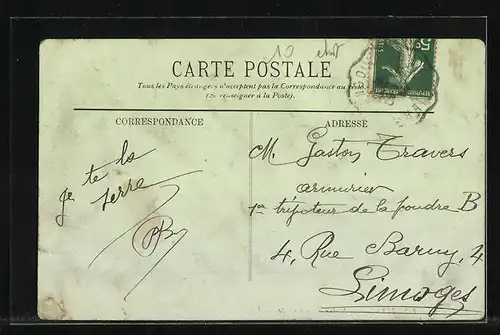 10
CARTE POSTALE
Tous les Pays étrangers n'acceptent pas la Correspondance au verso.
(Se renseigner à la Poste).
CORRESPONDANCE
ADRESSE
je te la
serre
PB
M. Gaston Travers
armurier
1er tripoteur de la poudre B
4, Rue Barny, 4
Limoges
5c
REPUBLIQUE FRANÇAISE
POSTES